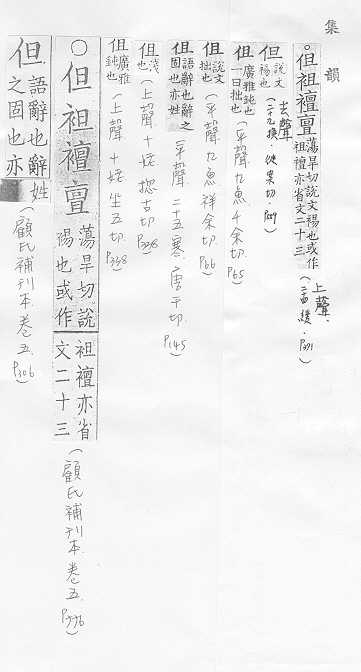 集韻
○但袒襢亶蕩旱切說文裼也或作袒襢亦省文二十三(上聲.二十四緩.P.371)
但說文裼也去聲(二十九換.徒案切.P.)
伹廣雅鈍也一曰拙也(平聲九魚千余切.P.65)
伹說文拙也(平聲九魚祥余切.P.66)
但語辭也辭之固也亦姓(平聲二十五寒.唐干切.P.145)
伹淺也(上聲十姥摠古切.P.338)
伹廣雅鈍也(上聲十姥坐五切.P.338)
○但袒襢亶蕩旱切說文裼也或作袒襢亦省文二十三(顧氏補刊本.卷五.P.776)
但語辭也辭之固也亦姓(顧氏補刊本.卷五.P.306)